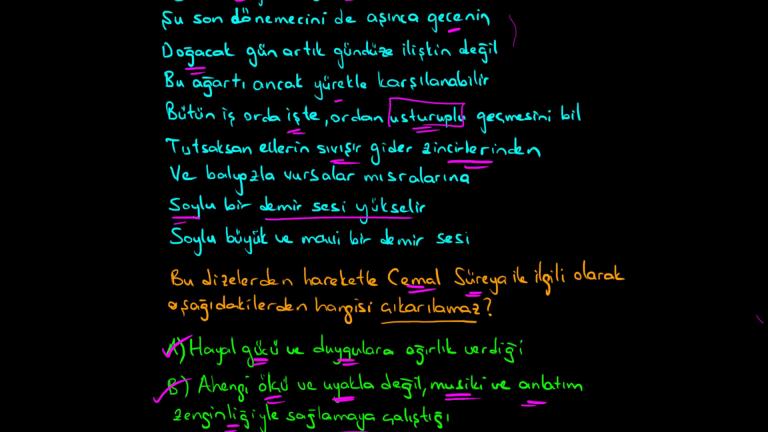 Şu son dönemecini de aşınca gecenin
Doğacak gün artık gündüze ilişkin değil
Bu ağartı ancak yürekle karşılanabilir
Bütün iş orda işte, ordan usturuplu geçmesini bil
Tutsaksan ellerin sıvışır gider zincirlerinden
Ve balyozla vursalar mısralarına
Soylu bir demir sesi yükselir
Soylu büyük ve mavi bir demir sesi
Bu dizelerden hareketle Cemal Süreya ile ilgili olarak
aşağıdakilerden hangisi çıkarılamaz?
A) Hayal gücü ve duygulara ağırlık verdiği
B) Ahengi ölçü ve uyakla değil, musiki ve anlatım
zenginliğiyle sağlamaya çalıştığı